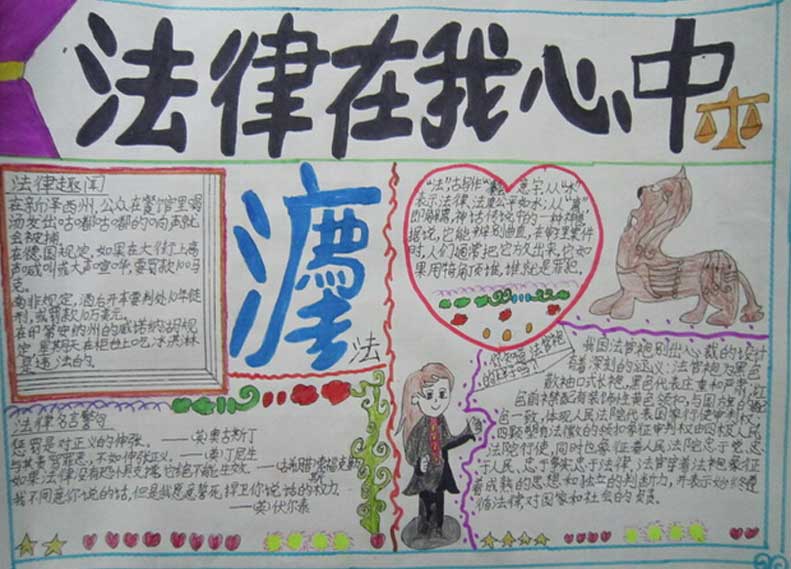 法律在我心中
法律趣闻
在新泽西州,公众在餐馆里喝
汤发出“咕嘟咕嘟”的响声就
会被捕
在德国规定,如果在大街上高
声喊叫或大声喧哗,要罚款100马
克。
南非规定,酒后开车要判处10年徒
刑,或罚款10万美元。
在印第安纳州的威诺纳湖规
定,星期天在柜台上吃冰淇淋
是违法的。
灋
法
法律名言警句
惩罚是对正义的伸张。——(英)奥古斯丁
与其责骂罪恶,不如伸张正义。——(英)丁尼生
如果法律没有恐惧支撑,它绝不能生效。——古希腊·索福克勒斯
我不同意你说的话,但是我愿意誓死捍卫你说话的权力
——(英)伏尔泰
“法”古写作“灋”意字,从“水”
表示法律、法度公平如水;从“廌”
即解廌,神话传说中的一种神兽,
据说,它能辨别曲直,在审理案件
时,人们通常把它放出来,它如
果用犄角顶谁,谁就是罪犯。
你知道法官袍
的样子吗?
我国法官袍别出心裁的设计
有着深刻的涵义:法官袍为黑色
散袖口式长袍,黑色代表庄重和严肃,红
色前襟配有装饰性黄色领扣,与国旗颜
色一致,体现人民法院代表国家行使审判权,
四颗塑有法徽的领扣象征审判权由四级人民
法院行使,同时也象征着人民法院忠于党、忠
于人民、忠于事实、忠于法律;法官穿着法袍象征
着成熟的思想和独立的判断力,并表示始终遵
循法律,对国家和社会的负责。